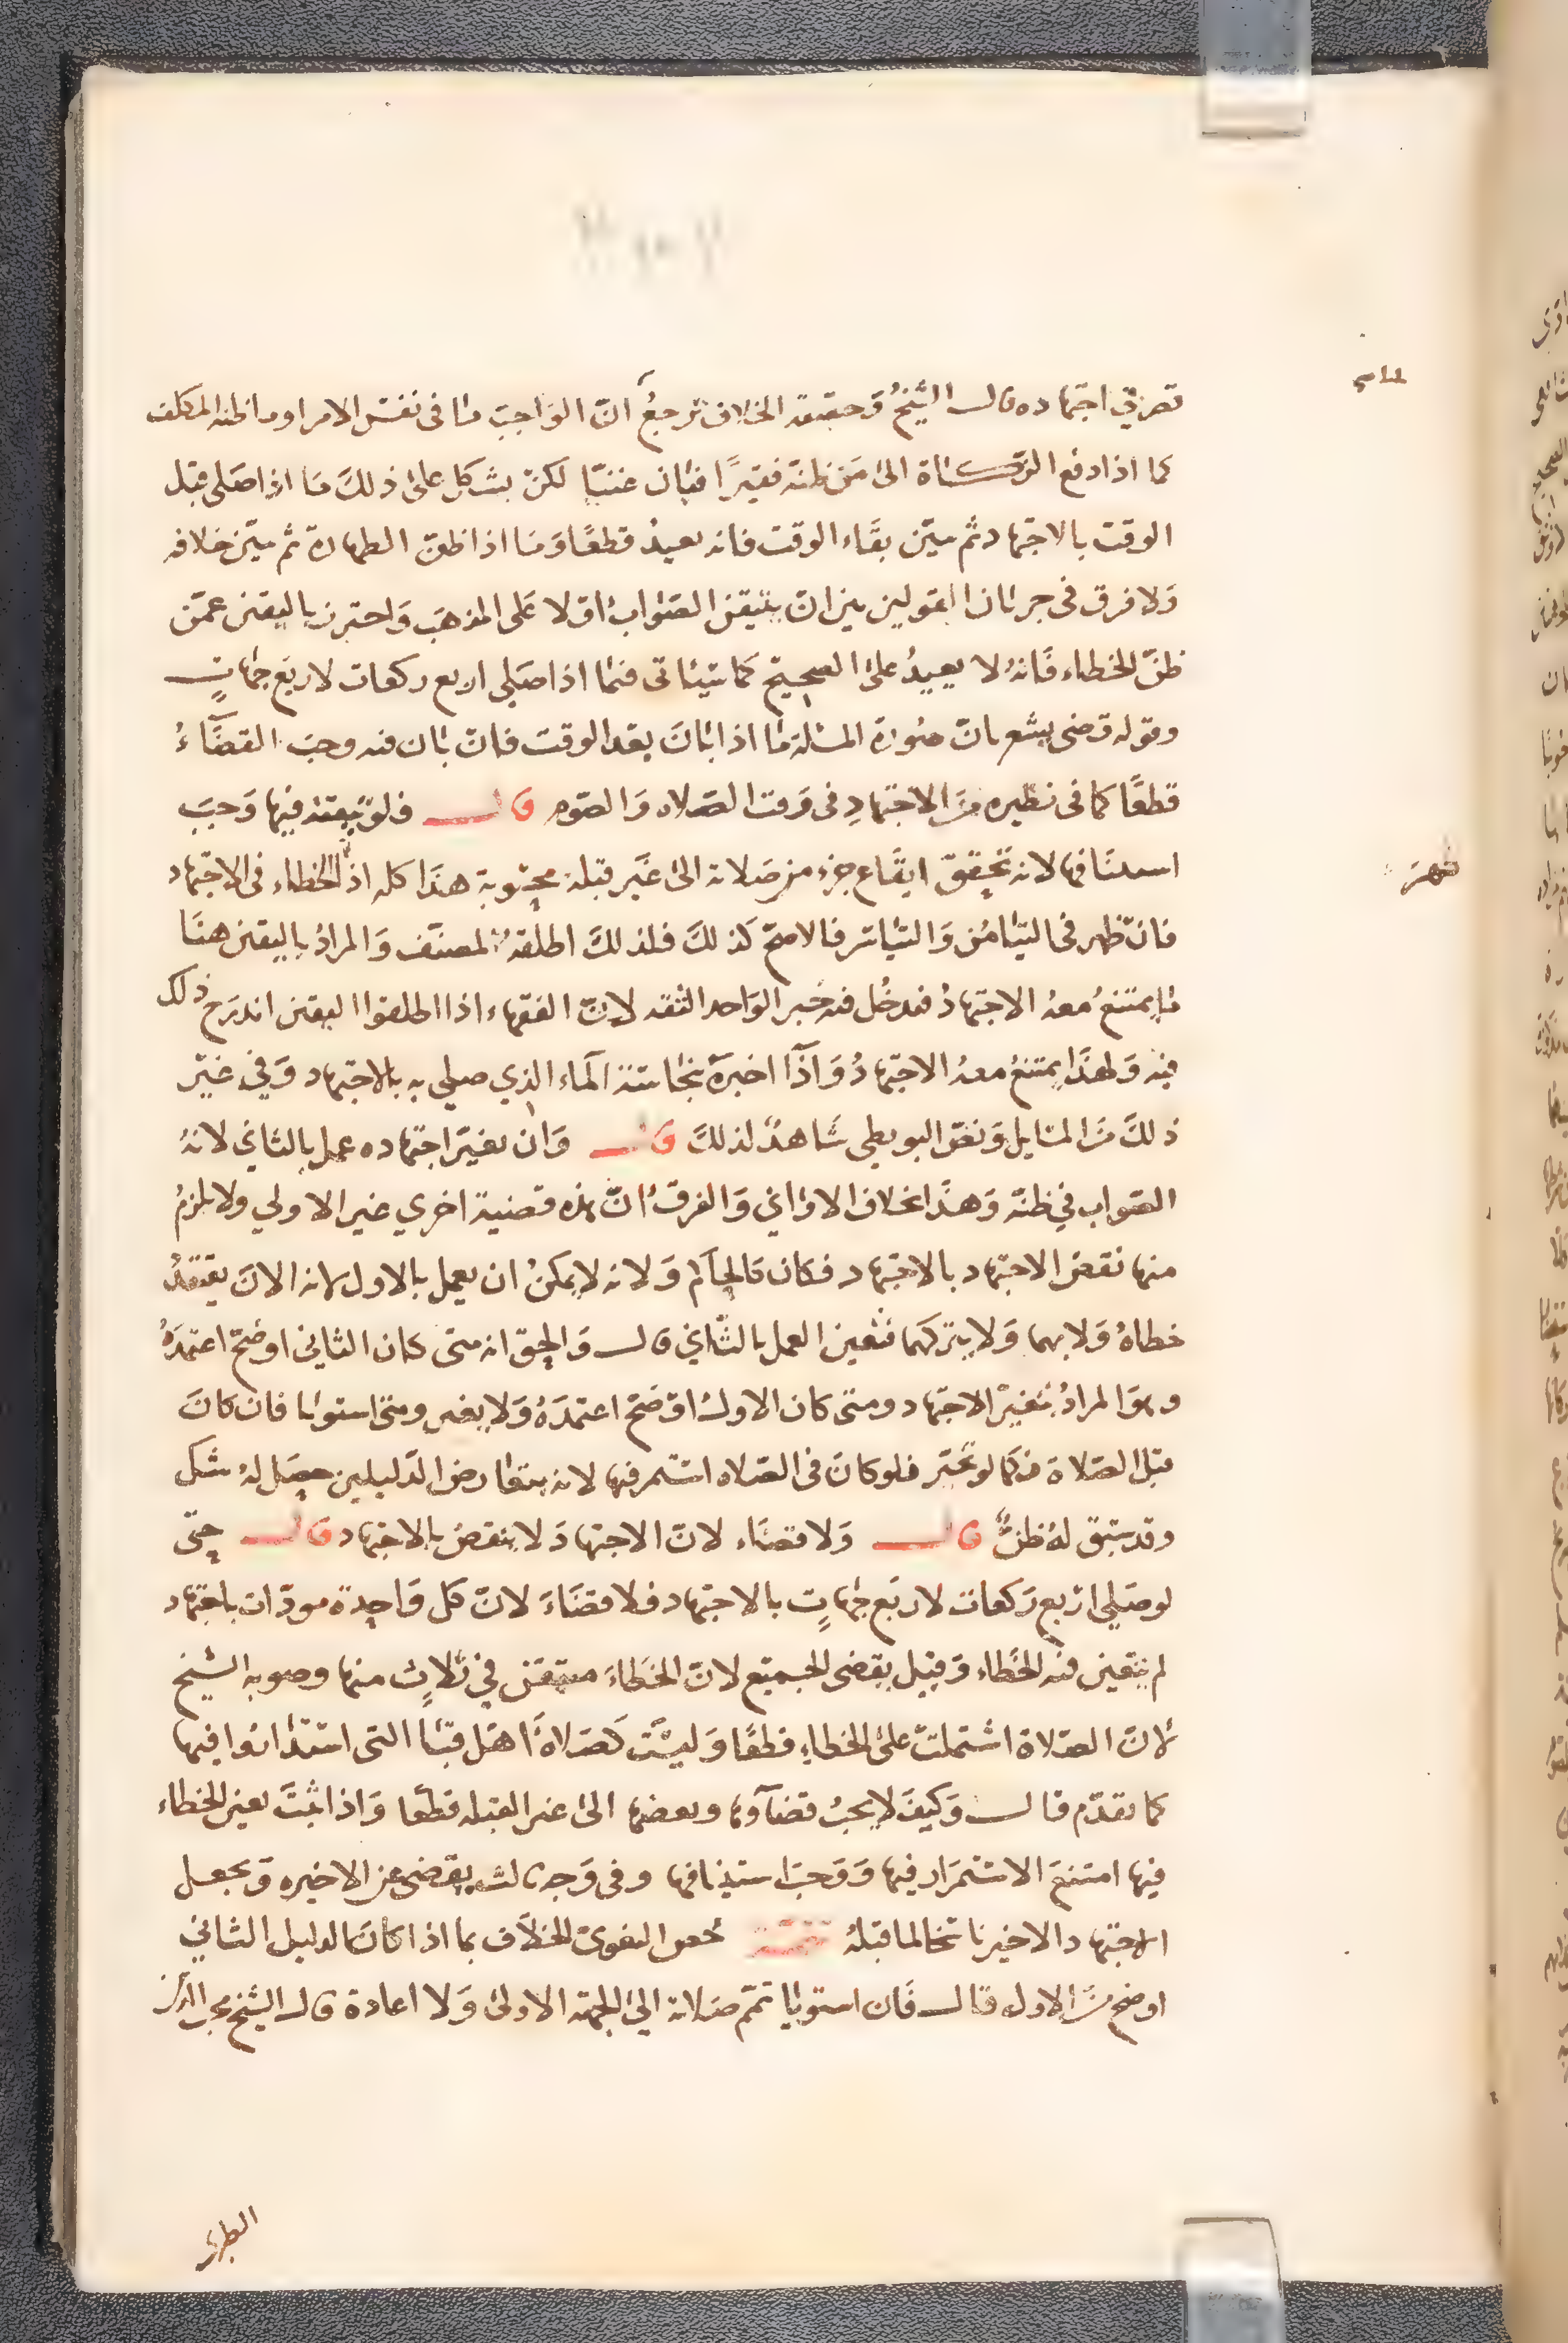 تصرفي اجتهاده قال الشيخُ وَحقيقة الخلاف ترجعُ انّ الوَاجبَ مَا فى نفسْ الامر او ما ظنه المكلف
كما اذا دفع الزكاة الى مَن ظنّه فقيرًا فبَان غنيًّا لكنْ يشكل على ذلكَ مَا اذا صَلى قبل
الوقت بالاجتهاد ثم تبيّن بقَاء الوقت فانه يعيدُ قطعًا وَمَا اذا ظنّ الطهارة ثم تبيّن خلافه
وَلا فرق فى جريَان القولين بين انْ يتيقن الصَواب اوْ لا عَلى المذهَب وَاحترز باليقين عمّن
ظنّ الخطاء فَانهُ لا يعيدُ على الصحيح كما سَيَاتى فيمَا اذا صَلى اربع ركعات لاربَع جهَاتٍ
وقوله قضى يشعر بانّ صُورة المسئلة مَا اذا بَانَ بعْد الوقت فانْ بَان فيه وجبَ القضَاءُ
قطعًا كما فى نظيره مِنَ الاجتهادِ فى وَقت الصَلاه وَالصَوم قال فلوْ تيقنه فيها وَجبَ
استئنَافها لانه تحققّ ايقَاع جزء من صَلاته الى غَير قبلة محسُوبة هذَا كله اذا الخطاء فى الاجتهاد
ظهرَ
فانْ ظهر فى التيَامُن وَالتيَاسر فالاصحّ كذلكَ فلذلكَ اطلقهُ المصنّف وَالمرادُ باليقين هنَا
مَا يمتنعُ معهُ الاجتهادُ فيدخُل فيه خبر الوَاحد الثقه لانّ الفقهاء اذا اطلقوا اليقين اندرَج ذلك
فيْه وَلهذَا يمتنعُ معهُ الاجتهادُ وَاذَا اخبرَه بنجَاسَة الماء الذي صلى به بالاجتهاد وَفي غيْر
ذلكَ مَن المسَايل وَنصّ البويطى شَاهدٌ لذلكَ قال وَان تغيَر اجتهاده عمل بالثاني لانهُ
الصَواب في ظنّه وَهذَا بخلاف الاوَاني وَالفرقُ انّ هذه قضية اخري غير الاولي ولا يلزمُ
منها نقضُ الاجتهاد بالاجتهاد فكان كَالحَاكم وَلانه لا يمكنُ ان يعمل بالاول لانه الانَ يعتقدُ
خطاهُ وَلا بهما وَلا يتركهما فتعين العمل بالثَاني قال وَالحقّ انه متى كان الثاني اوضحْ اعتمدَهُ
وهوَ المرادُ بتغيرْ الاجتهاد ومتى كان الاولُ اوْضَح اعتمدَهُ وَلا يغير ومتى استويَا فان كانَ
قبل الصَلاة فكَمَا لو تحيّر فلو كانَ فى الصَلاه استمر فيها لانه بتعَارض الدَليلين حصَل لهُ شك
وقد سَبق لهُ ظنٌّ قال وَلا قضَاء لانّ الاجتهادَ لا ينقضُ بالاجتهاد قال حتّى
لو صَلى ارْبع رَكعات لاربَع جهَاتٍ بالاجتهاد فلا قضَاءَ لانّ كل وَاحدة مودّاة باجتهاد
لم يتعين فيه الخطاء وَقيْل يقضى الجميْع لانّ الخطاءَ متيقن في ثلاثٍ منها وصوبه الشيخ
لانّ الصَلاة اشتملتْ على الخطاءِ قطعًا وَليسَت كَصَلاة اهْل قبَا التى استدَارُوا فيها
كما تقدّم قال وَكيفَ لا يجبُ قضَاؤها وبعضها الى غير القبله قطعا وَاذا ثبتَ تعين الخطاء
فيها امتنعَ الاستمرَار فيها وَوَجبَ استينافها وفى وَجه ثالث يقضى غير الاخيره وَيجعل
الاجتهاد الاخير ناسخا لما قبلهُ تتمّة خصّ البغوىّ الخلاَف بما اذا كانَ الدليل الثاني
اوضح مِنَ الاول قال فَان استويَا تمّم صَلاته الى الجهة الاولى وَلا اعادة قال الشيخ محب الدين
الطبرى